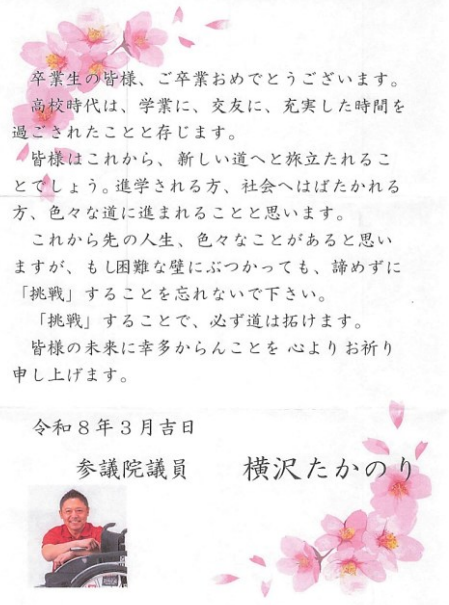 卒業生の皆様、ご卒業おめでとうございます。
高校時代は、学業に、交友に、充実した時間を
過ごされたことと存じます。
皆様はこれから、新しい道へと旅立たれるこ
とでしょう。進学される方、社会へはばたかれる
方、色々な道に進まれることと思います。
これから先の人生、色々なことがあると思い
ますが、もし困難な壁にぶつかっても、諦めずに
「挑戦」することを忘れないで下さい。
「挑戦」することで、必ず道は拓けます。
皆様の未来に幸多からんことを 心よりお祈り
申し上げます。
令和8年3月吉日
参議院議員 横沢たかのり